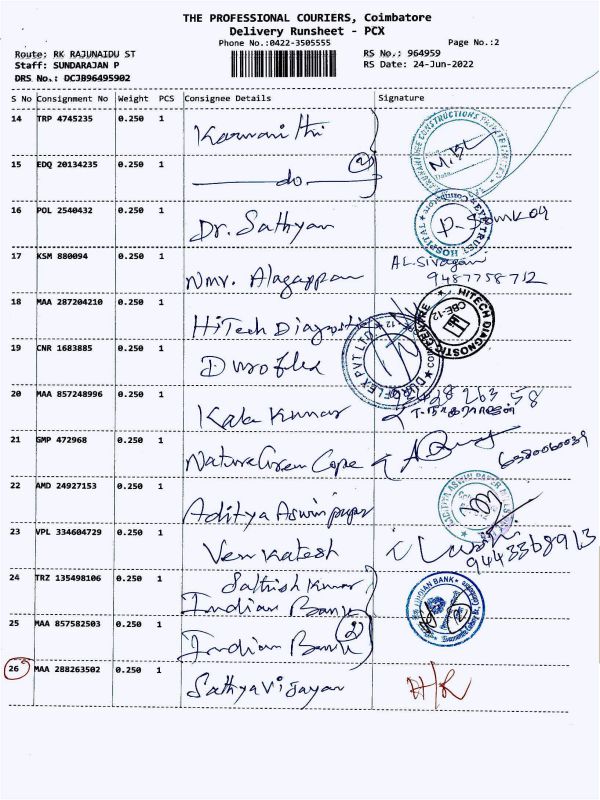 THE PROFESSIONAL COURIERS, Coimbatore
Delivery Runsheet - PCX
Phone No.:0422-3505555
Page No.:2
Route: RK RAJUNAIDU ST
RS No.: 964959
Staff: SUNDARAJAN P
RS Date: 24-Jun-2022
DRS No.: DCJB96495902
S No Consignment No Weight PCS Consignee Details Signature
14 TRP 4745235 0.250 1
15 EDQ 20134235 0.250 1 do (2)
16 POL 2540432 0.250 1 Dr. Sathyan
17 KSM 880094 0.250 1 Nmr. Alagappan AL.Sivagami
9487758712
18 MAA 287204210 0.250 1 HiTech Diagnostic HITECH DIAGNOSTIC CENTRE CBE-12
19 CNR 1683885 0.250 1 Duroflex DUROFLEX PVT LTD
20 MAA 857248996 0.250 1 Kala Kumar
21 GMP 472968 0.250 1 Nature Green Cope 6380060039
22 AMD 24927153 0.250 1 Aditya Aswin paper
23 VPL 334604729 0.250 1 Venkatesh
24 TRZ 135498106 0.250 1 Sathish Kumar
Indian Bank INDIAN BANK
25 MAA 857582503 0.250 1 Indian Bank (2)
26 MAA 288263502 0.250 1 Sathya Vijayan